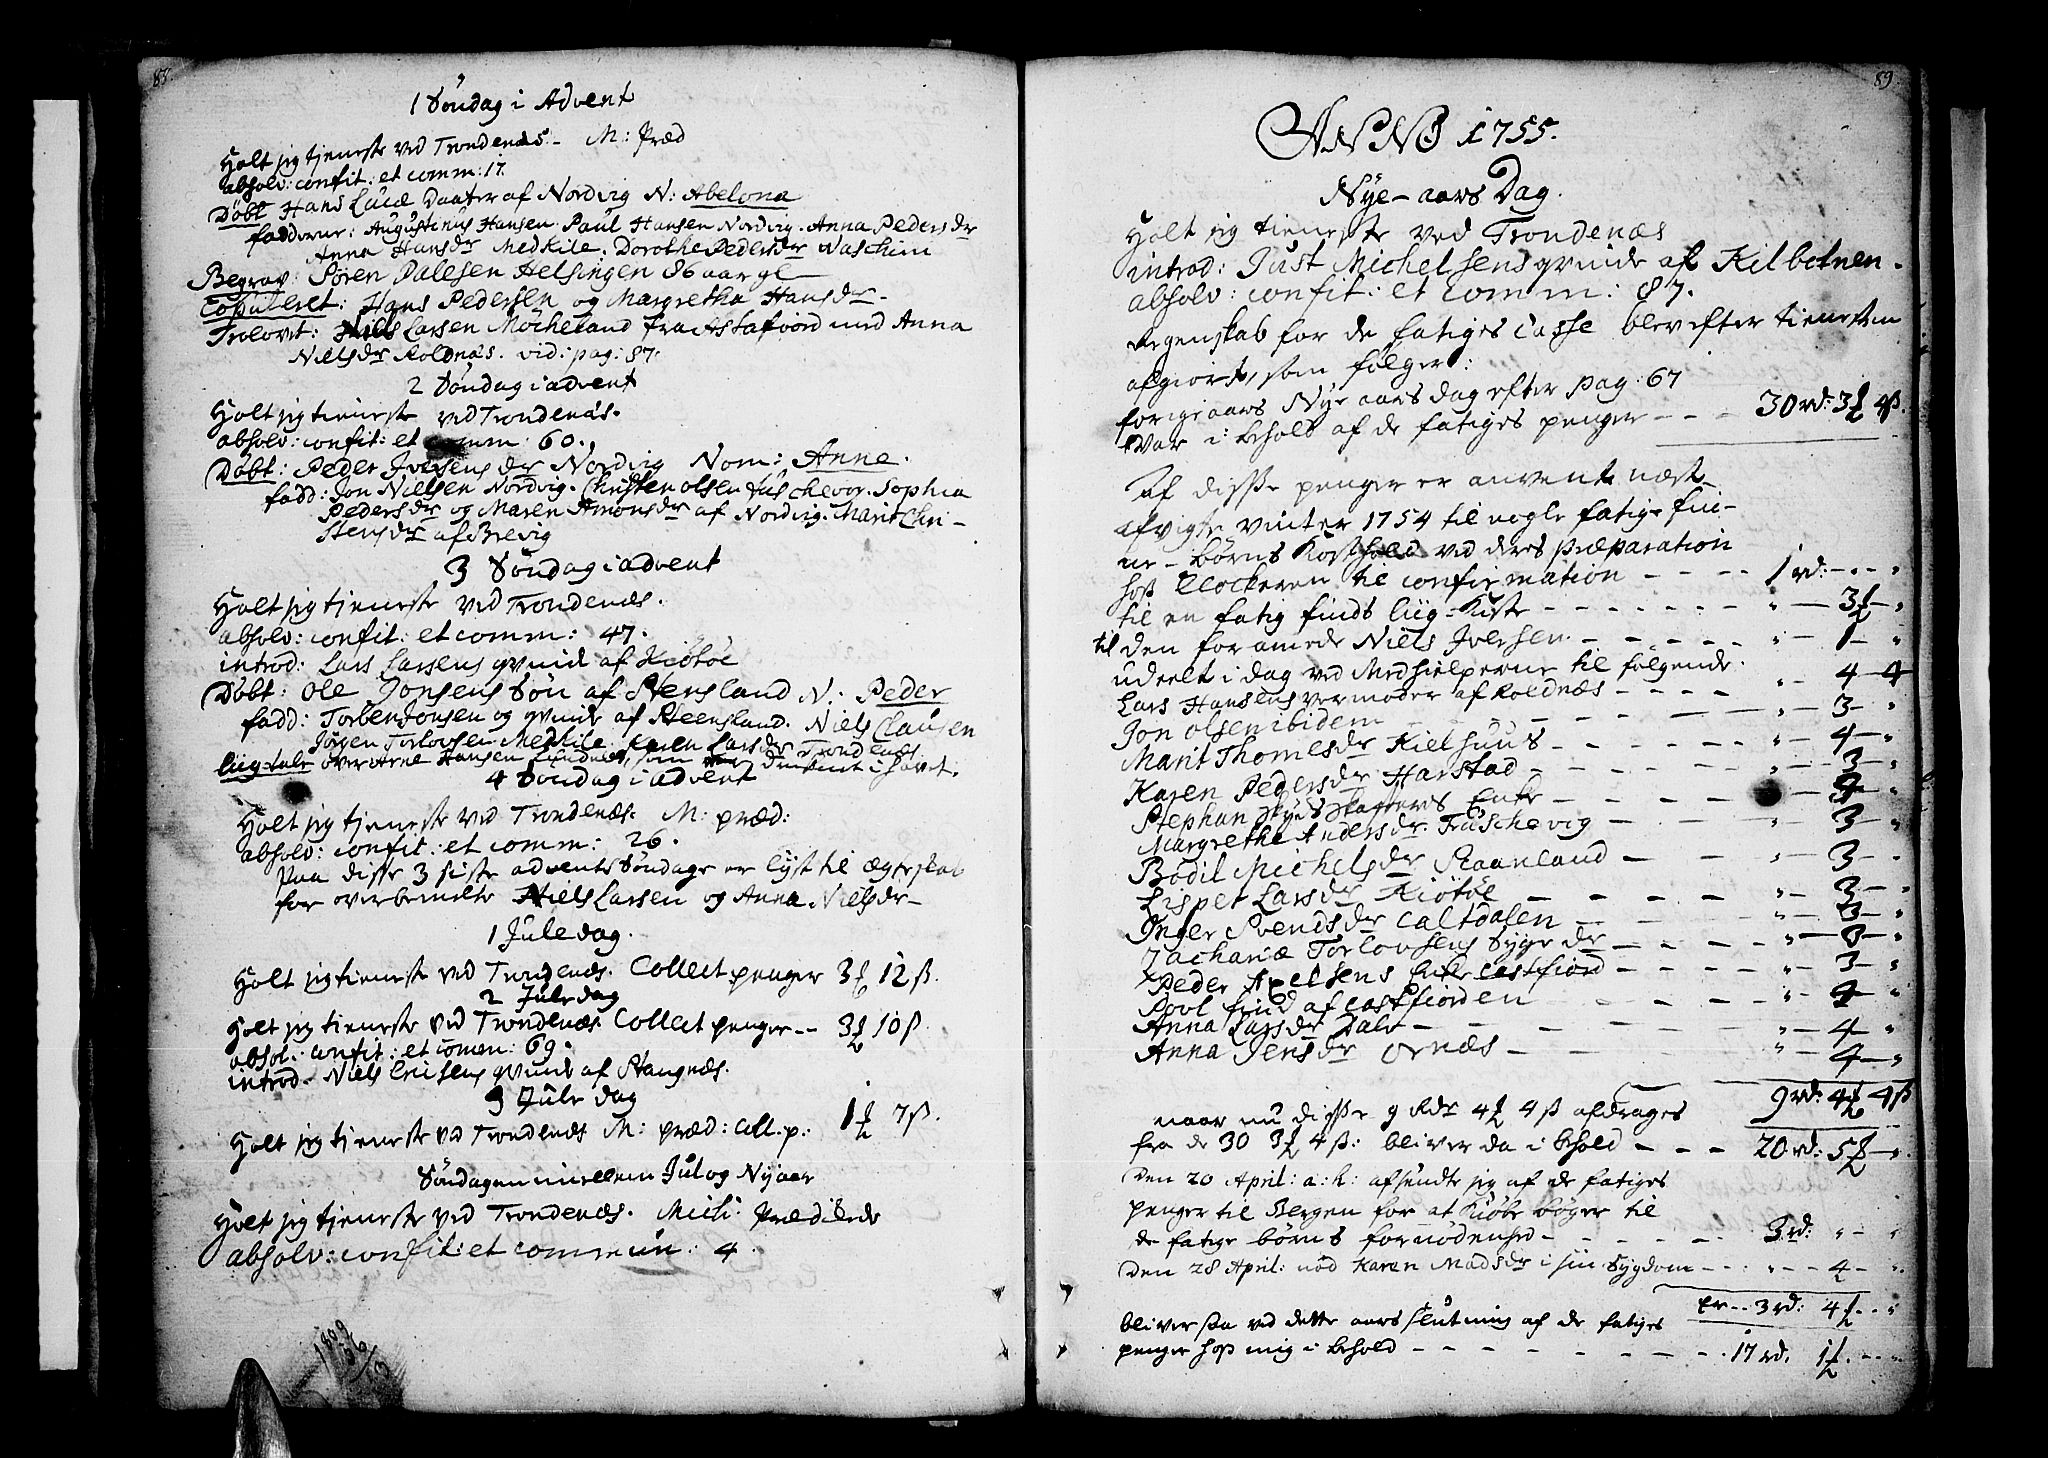 88.
1 Søndag i Advent
Holt jeg tjeneste ved Trondenæs. M: Præd
absolv: confit: et comm: 17.
Døbt Hans Daater af Nordvig N: Abelona
fadderne: Augustinus Hansen. Paul Hansen Nordvig. Anna Pedersdr
Anna Hansdr Medkile. Dorothe Pedersdr
Begrav: Søren Dalesen Helsingen 86 aar gl
Copuleret: Hans Pedersen og Margretha Hansdr
Trolovet: Niels Larsen fra Astafiord med Anna
Nielsdr Roldnæs. vid: pag: 87.
2 Søndag i advent
Holt jeg tieneste ved Trondenæs.
absolv: confit: et comm: 60.
Døbt: Peder Iversens dr Nordvig Nom: Anne.
fadd: Jon Nielsen Nordvig. Christen Olsen Sophia
Pedersdr og Maren Amonsdr af Nordvig. Marit Chri-
stensdr af Brevig
3 Søndag i advent
Holt jeg tjeneste ved Trondenæs.
absolv: confit: et comm: 47.
introd: Lars Larsens qvinde af Kiøtøe
Døbt: Ole Jonsens Søn af Stensland N: Peder
fadd: Torben Jonsen og qvinde af Steensland. Niels Clausen
Jørgen Torlovsen Medkile. Karen Larsdr Trondenæs
Liig-tale over Arne Hansen som druknit i havet.
4 Søndag i advent
Holt jeg tjeneste ved Trondenæs. M: præd:
absolv: confit: et comm: 26.
Paa disse 3 siste advents Søndage er lyst til ægteskab
for overbemelte Niels Larsen og Anna Nielsdr
1 Juledag.
Holt jeg tieneste ved Trondenæs. Collect penger 3 12 ß.
2 Juledag
Holt jeg tieneste ved Trondenæs Collect penger 3 10 ß.
absol. confit: et comm: 69.
introd. Niels Erichsens qvinde af Stangnæs.
3 Juledag
Holt jeg tjeneste ved Trondenæs M: præd: Coll. p: 1 7 ß.
Søndagen imellem Jul og Nyaar
Holt jeg tjeneste ved Trondenæs. Mich: Prædikede
absolv: confit: et commun: 4.
89
ANNO 1755.
Nye-aars Dag.
Holt jeg tieneste ved Trondenæs
introd: Just Michelsens qvinde af Kilbotnen.
absolv: confit: et comm: 87.
Regenskab for de fatiges Casse blev efter tienesten
afgiort, som følger:
forige aars Nye aars dag efter pag: 67
var i behold af de fatiges penger - - - 30 rd: 3 4 ß.
Af disse penger er anvent næst
afvigte vinter 1754 til nogle fatige fin-
ne-børns Kosthold ved deres præparation
hoß Clockeren til confirmation - - - - 1 rd:
til en fatig finds liig-Kiste - - - - 3
til den forarmede Niels Iversen - - - - 1
udeelt i dag ved Medhielperne til følgende:
Lars Hansens vermoder af Roldnæs - - - - 4 4
Jon Olsen ibidem - - - - 3
Marit Thomesdr Kielhuus - - - - 4
Karen Pedersdr Harstad - - - - 3
Stephan Enke - - - -
Margrethe Andersdr. - - - - 3
Bodil Michelsdr Raanland - - - 3
Lispet Larsdr Kiøtøe - - - - 3
Inger Svendsdr Caltdalen - - - - 3
Zachariæ Torlovsens Syge dr - - - - 3
Peder Axelsens Enke Castfiord - - - 3
Povl find af Castfiorden - - - - 4
Anna Larsdr - - - - 4
Anna Jensdr Ornæs - - - - 4
9 rd: 4 4 ß
naar nu disse 9 Rdr 4 4 ß afdrages
fra de 30 3 4 ß: bliver da i behold - - - 20 rd: 5
Den 20 April: a: h: afsendte jeg af de fatiges
penger til Bergen for at Kiøbe bøger til
de fatige børns fornødenhed - - - - 3 rd:
Den 28 April: nød Karen Madsdr i sin Sygdom - - - 4
er - - 3 rd: 4
bliver saa ved dette aars slutning af de fatiges
penger hoß mig i behold - - - - 17 rd. 1